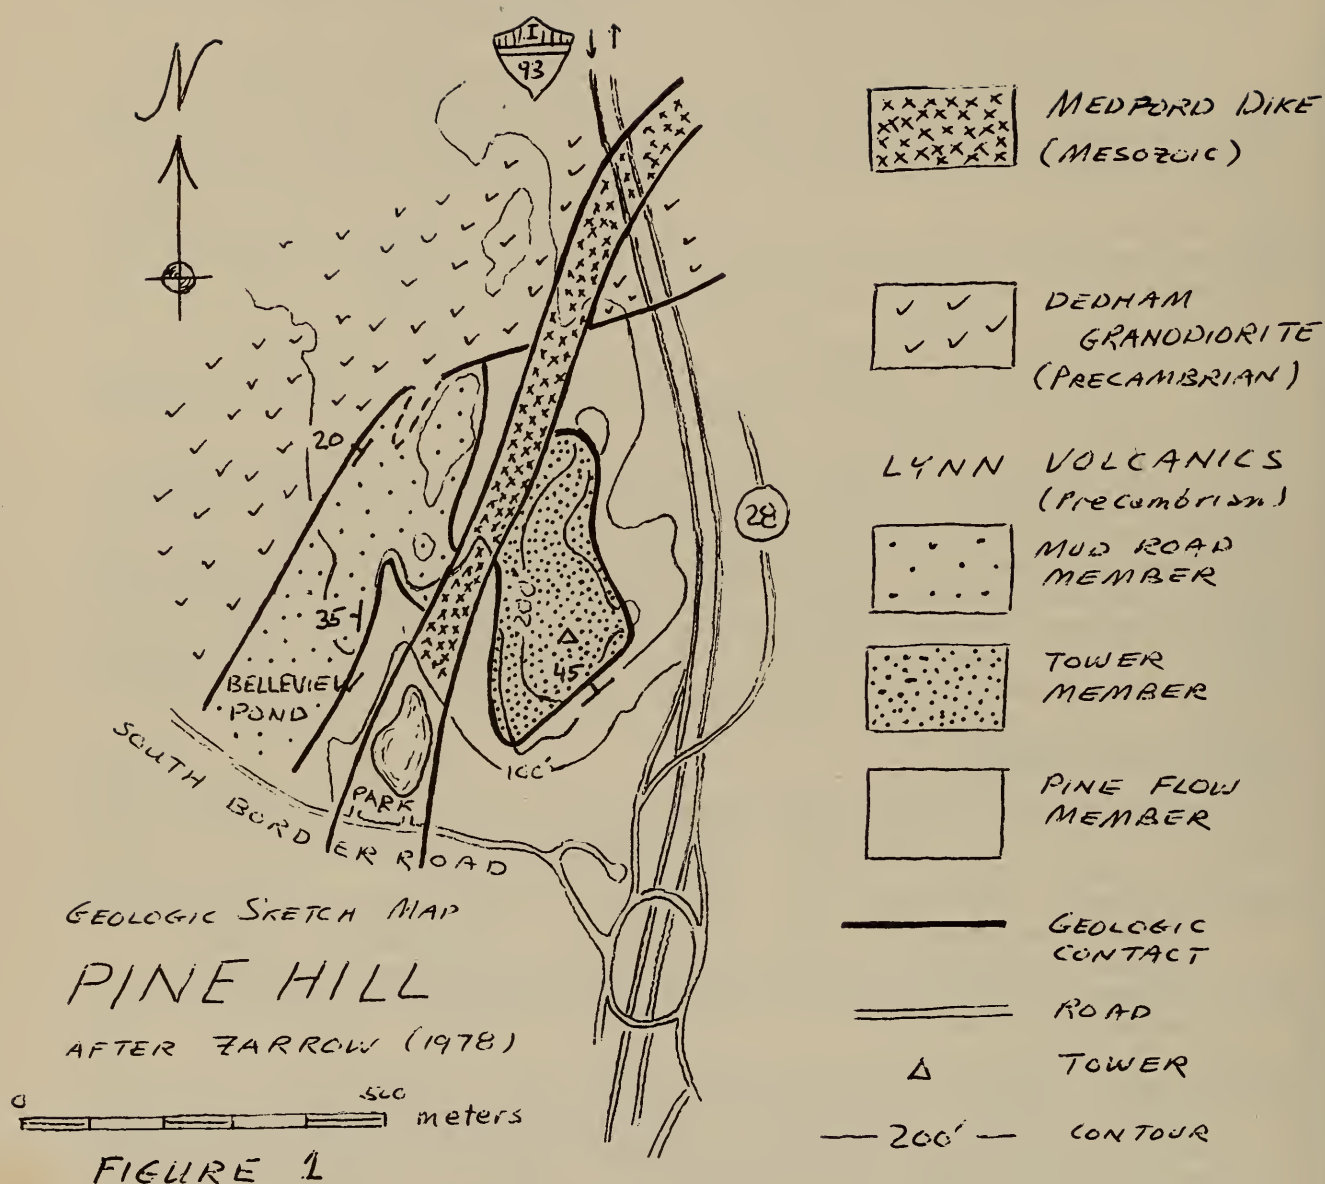 N
I
93
28
20
35
45
200'
100'
BELLEVIEW
POND
SOUTH BORDER ROAD
PARK
GEOLOGIC SKETCH MAP
PINE HILL
AFTER ZARROW (1978)
0 500
meters
FIGURE 1
MEDFORD DIKE
(MESOZOIC)
DEDHAM
GRANODIORITE
(PRECAMBRIAN)
LYNN VOLCANICS
(Precambrian)
MUD ROAD
MEMBER
TOWER
MEMBER
PINE FLOW
MEMBER
GEOLOGIC
CONTACT
ROAD
TOWER
200'
CONTOUR